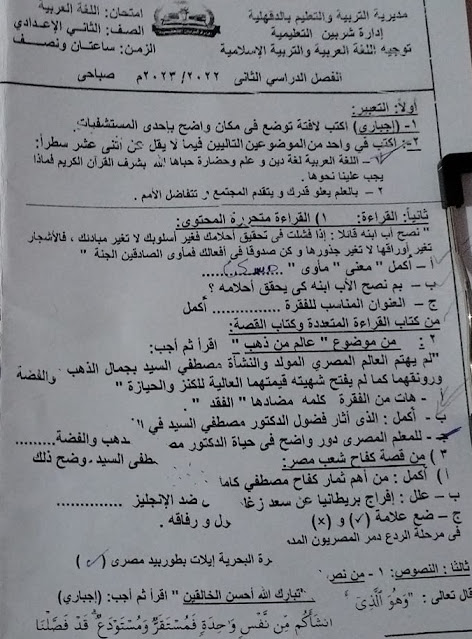 مديرية التربية والتعليم بالدقهلية
إدارة شربين التعليمية
توجيه اللغة العربية والتربية الإسلامية
امتحان: اللغة العربية
الصف: الثاني الإعدادي
الزمن: ساعتان ونصف
الفصل الدراسي الثانى ٢٠٢٢/ ٢٠٢٣م صباحى
أولاً: التعبير:
١- (إجباري) اكتب لافتة توضع في مكان واضح بإحدى المستشفيات
٢-: اكتب في واحد من الموضوعين التاليين فيما لا يقل عن اثنى عشر سطراً:
١ – اللغة العربية لغة دين و علم وحضارة حباها الله بشرف القرآن الكريم فماذا
يجب علينا نحوها .
٢ – بالعلم يعلو قدرك و يتقدم المجتمع و تتفاضل الأمم .
ثانياً: القراءة: ١) القراءة متحررة المحتوى:
" نصح أب ابنه قائلا : إذا فشلت في تحقيق أحلامك فغير أسلوبك لا تغير مبادئك ، فالأشجار
تغير أوراقها لا تغير جذورها و كن صدوقا في أفعالك فمأوى الصادقين الجنة "
أ – أكمل " معنى " مأوى " ............
ب – بم نصح الأب ابنه كى يحقق أحلامه ؟
ج – العنوان المناسب للفقرة ............... أكمل
من كتاب القراءة المتعددة وكتاب القصة:
٢ : من موضوع " عالم من ذهب " اقرأ ثم أجب:
"لم يهتم العالم المصري المولد والنشأة مصطفي السيد بجمال الذهب والفضة
ورونقهما كما لم يفتح شهيته قيمتهما العالية للكنز والحيازة "
أ - هات من الفقرة كلمة مضادها " الفقد "
ب- أكمل : الذى أثار فضول الدكتور مصطفى السيد في ذهب والفضة.........
ج- للمعلم المصرى دور واضح في حياة الدكتور مصطفى السيد . وضح ذلك
٣ ) من قصة كفاح شعب مصر:
أ ) أكمل : من أهم ثمار كفاح مصطفي كامل ضد الإنجليز ............
ب - علل : إفراج بريطانيا عن سعد زغلول و رفاقه .
ج - ضع علامة (√) و (×)
في مرحلة الردع دمر المصريون رة البحرية إيلات بطوربيد مصرى ( )
ثالثا : النصوص: ١ - من نص "تبارك الله أحسن الخالقين " اقرأ ثم أجب: (إجباري)
قال تعالى : "وَهُوَ الَّذِىٓ
أَنشَأَكُم مِّن نَّفْسٍ وَاحِدَةٍ فَمُسْتَقَرٌّ وَمُسْتَوْدَعٌ قَدْ فَصَّلْنَا